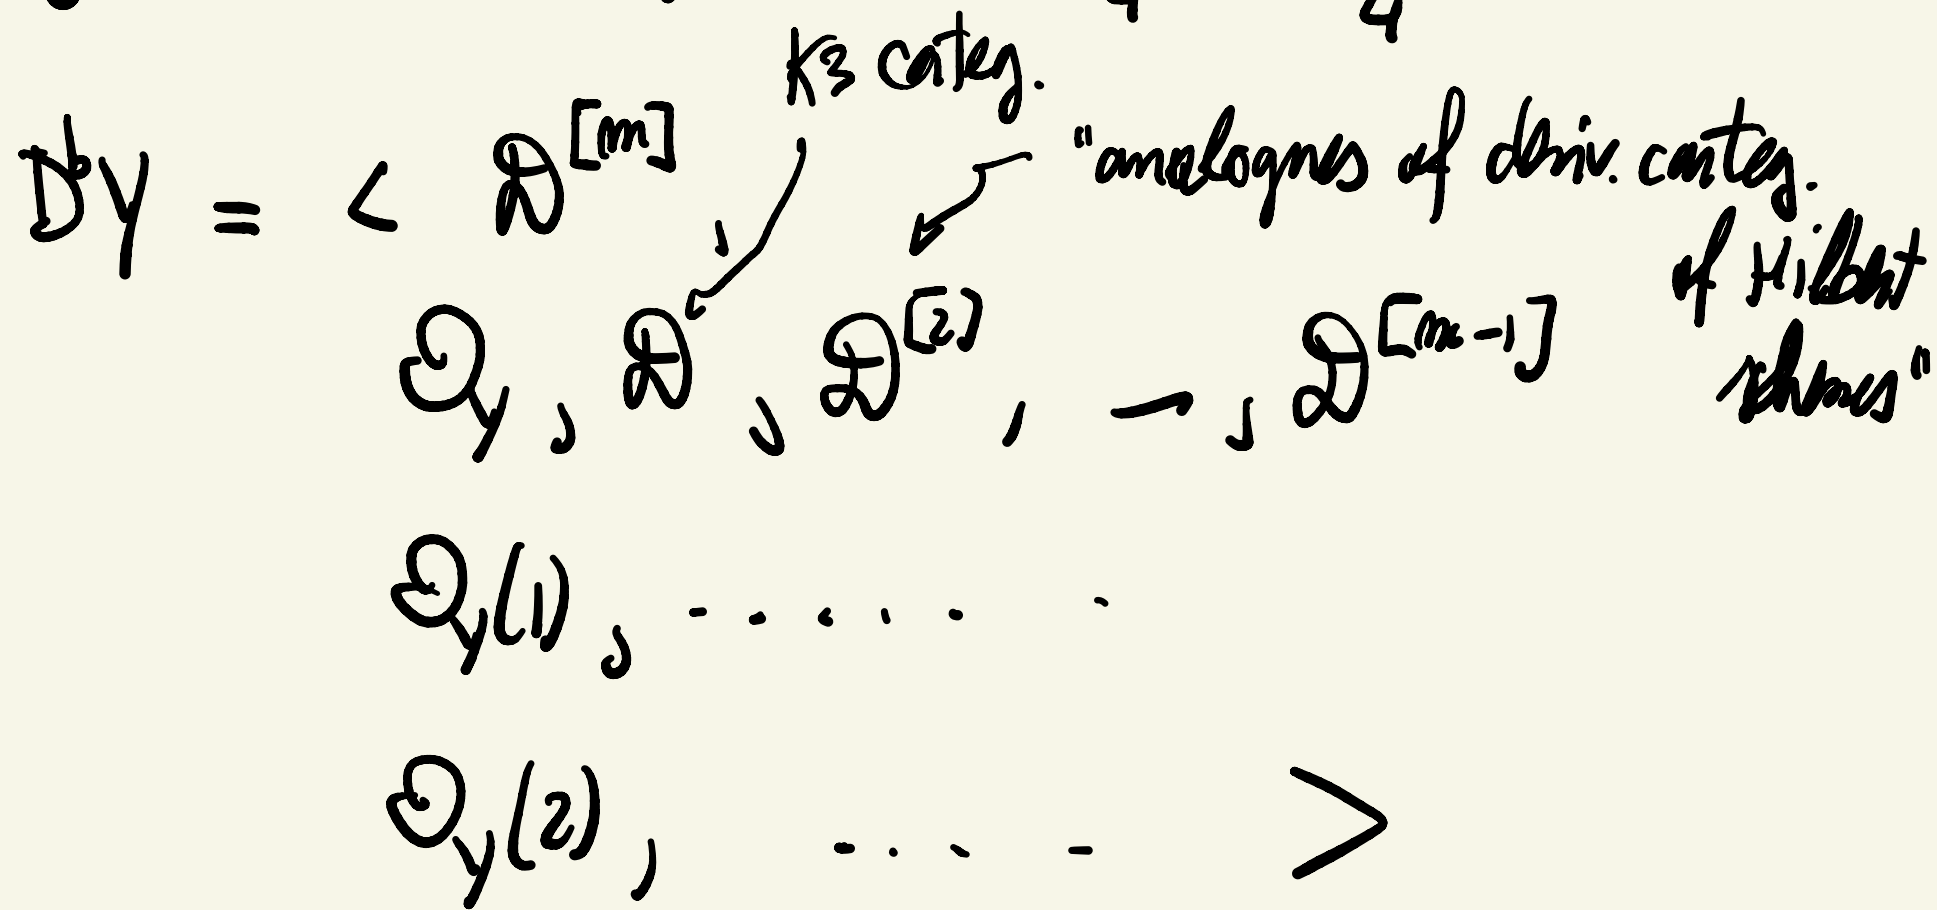 K3 categ.
D^b Y = < 𝒟^[m],
"analogues of deriv. categ.
of Hilbert
schemes"
𝒪_Y, 𝒟, 𝒟^[2], —, 𝒟^[m-1]
𝒪_Y(1), ......
𝒪_Y(2), .... >